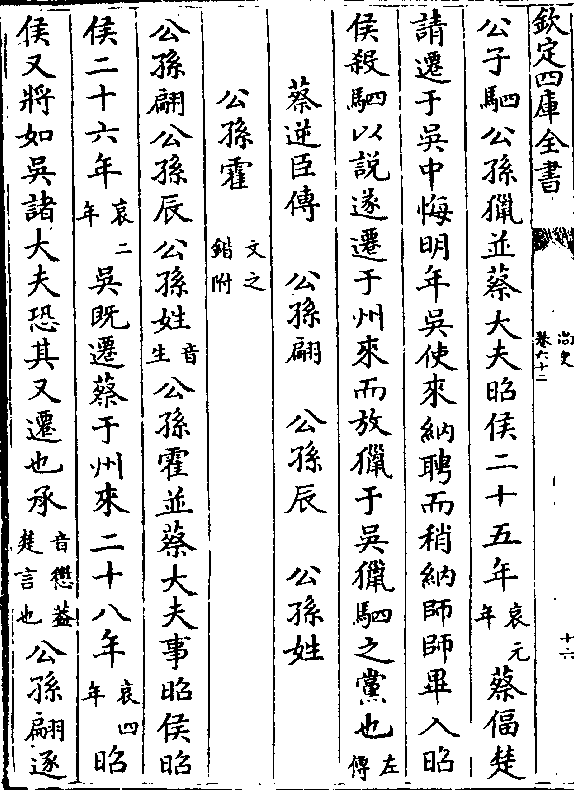 欽定四庫全書
尚史
卷六十二
十六
公子駟公孫獵並蔡大夫昭侯二十五年哀元年蔡偪楚
請遷于吳中悔明年吳使來納聘而稍納師師畢入昭
侯殺駟以說遂遷于州來而放獵于吳獵駟之黨也左傳
蔡逆臣傳 公孫翩 公孫辰 公孫姓
公孫霍 文之鍇附
公孫翩公孫辰公孫姓音生公孫霍並蔡大夫事昭侯昭
侯二十六年哀二年吳既遷蔡于州來二十八年哀四年昭
侯又將如吳諸大夫恐其又遷也承音懲蓋楚言也公孫翩逐